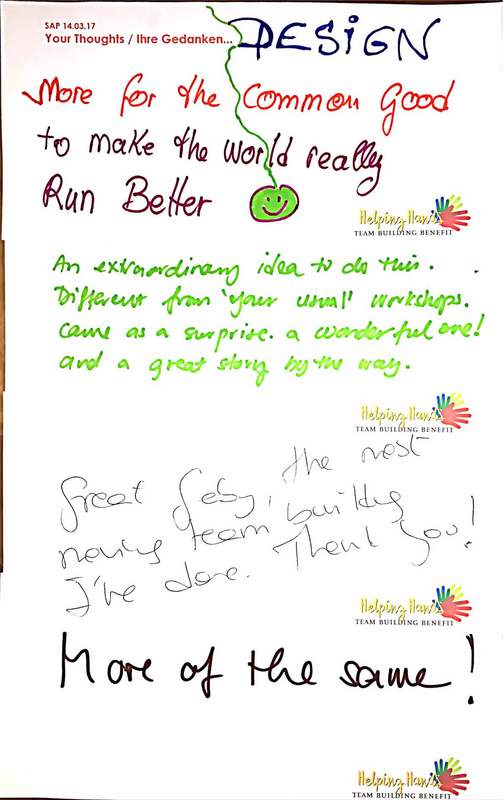 SAP 14.03.17
Your Thoughts / Ihre Gedanken...
DESiGN
More for the Common Good
to make the world really
Run Better
Helping Hands
TEAM BUILDING BENEFIT
An extraordinary idea to do this.
Different from 'your usual' workshops.
Came as a surprise. a wonderful one!
and a great story by the way.
Helping Hands
TEAM BUILDING BENEFIT
Great Gaby, the most
moving team building
I've done. Thank you!
Helping Hands
TEAM BUILDING BENEFIT
More of the same!
Helping Hands
TEAM BUILDING BENEFIT